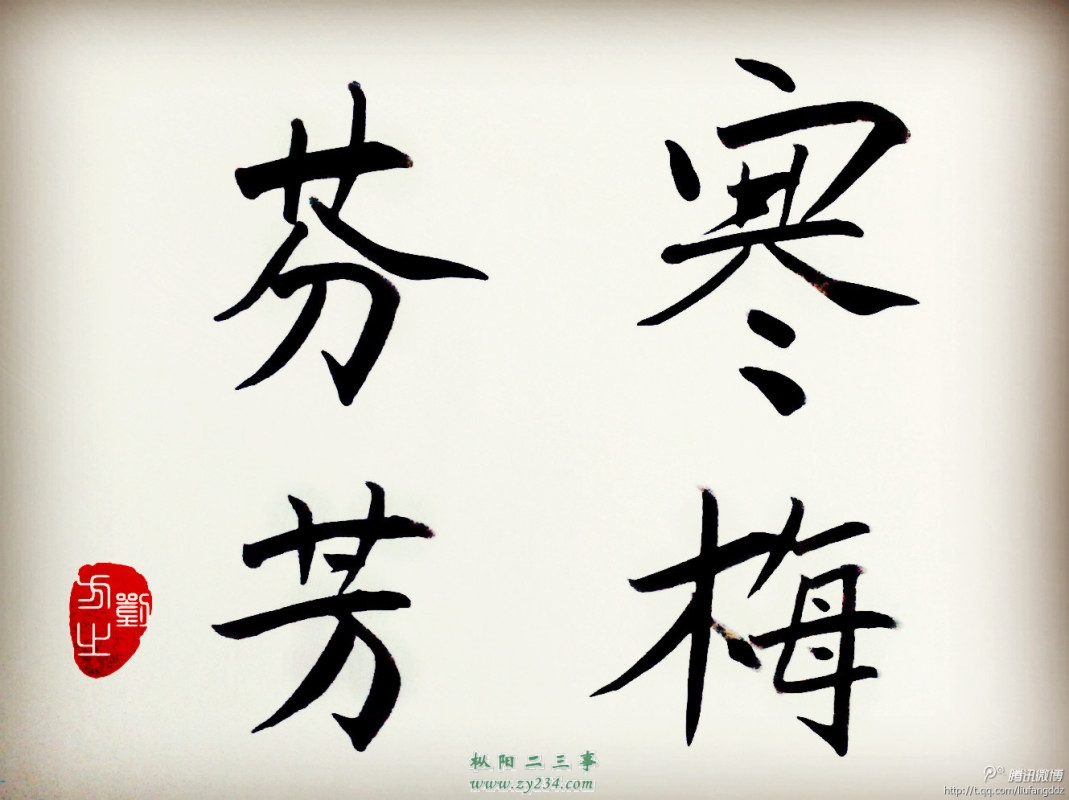 寒梅
芬芳
劉
方之
枞阳二三事
www.zy234.com
腾讯微博
http://t.qq.com/liufangddz